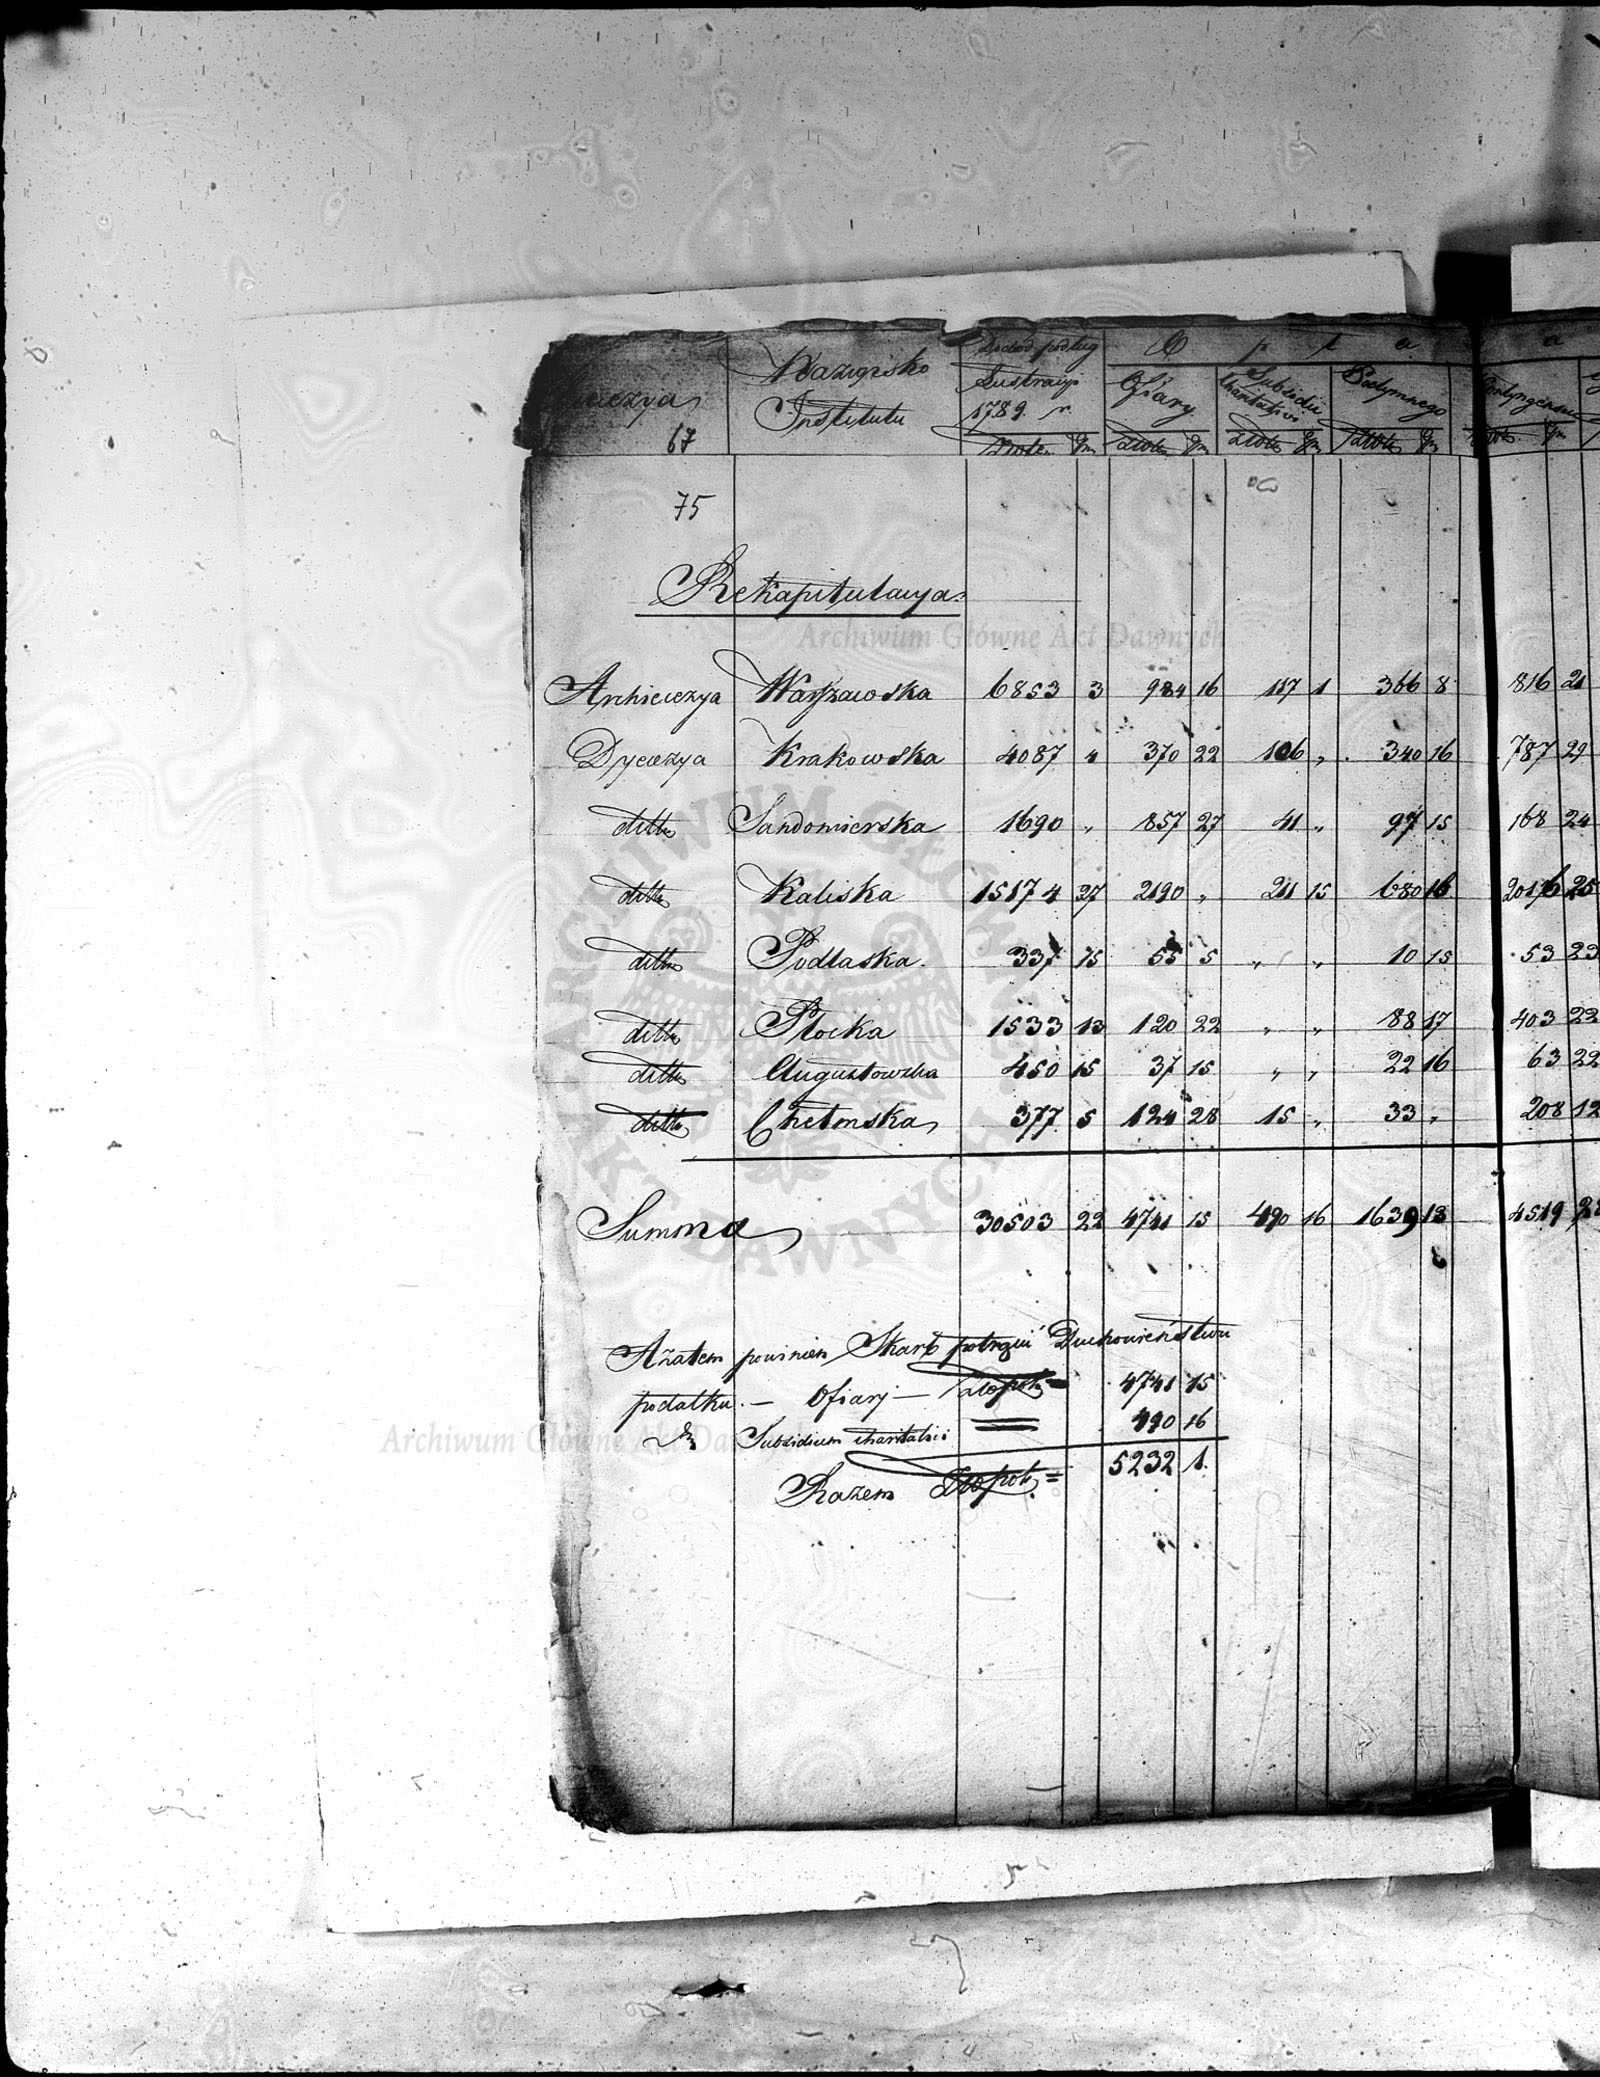 Nazwisko Dochód podług O p ł a
Lustracyi Ofiary Subsidii Podymnego
Institutu 1789. r. charitativi
67 złote gr złote gr złote gr złote gr złote gr
75
Rekapitulacya
Archidiecezya Warszawska 6853 3 984 16 117 1 366 8 816 21
Dyecezya Krakowska 4087 4 370 22 106 „ 340 16 787 29
ditto Sandomierska 1690 „ 857 27 41 „ 97 15 168 24
ditto Kaliska 15174 27 2190 „ 211 15 680 16 2016 25
ditto Podlaska 337 15 55 5 „ „ 10 15 53 23
ditto Płocka 1533 13 120 22 „ „ 88 17 403 22
ditto Augustowska 450 15 37 15 „ „ 22 16 63 22
ditto Chełmska 377 5 124 28 15 „ 33 „ 208 12
Summa 30503 22 4741 15 490 16 1639 13 4519
A zatem powinien Skarb potrącić Duchowieństwu
podatku — Ofiary — Złopol 4741 15
Subsidium charitativi 490 16
Razem Złopol = 5232 1.
Archiwum Główne Akt Dawnych
ARCHIWUM GŁÓWNE AKT DAWNYCH
Archiwum Główne Akt Dawnych